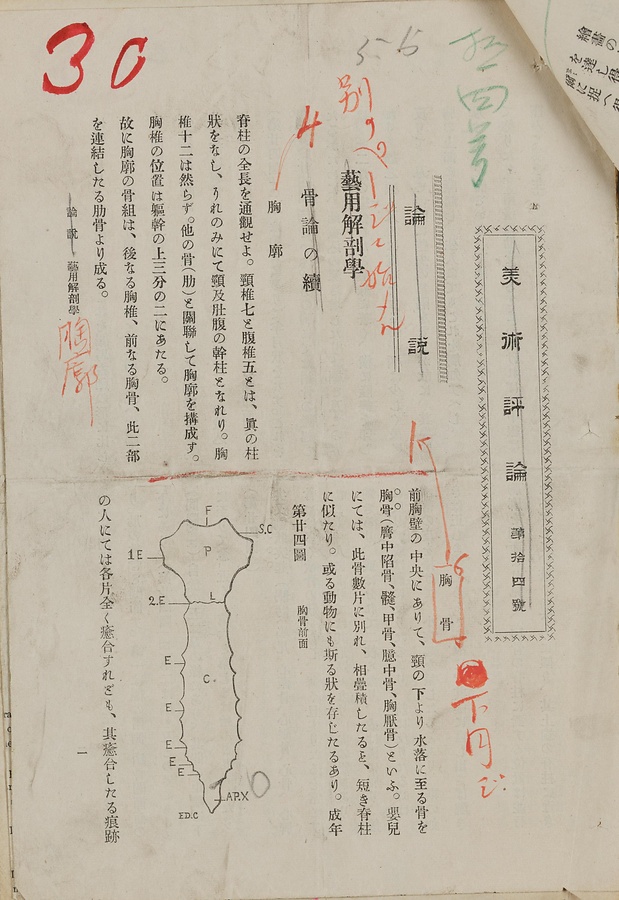 美術評論 第拾四號
論説
藝用解剖學
骨論の續
胸廓
脊柱の全長を通觀せよ。頸椎七と腹椎五とは、眞の柱
狀をなし、うれのみにて頸及肚腹の幹柱となれり。胸
椎十二は然らず。他の骨(肋)と關聯して胸廓を搆成す。
胸椎の位置は軀幹の上三分の二にあたる。
故に胸廓の骨組は、後なる胸椎、前なる胸骨、此二部
を連結したる肋骨より成る。
胸骨
前胸壁の中央にありて、頸の下より水落に至る骨を
胸骨(膺中陷骨、髑、甲骨、臆中骨、胸厭骨)といふ。嬰兒
にては、此骨數片に別れ、相疊積したると、短き脊柱
に似たり。或る動物にも斯る狀を存じたるあり。成年
第廿四圖 胸骨前面
F
S.C
P
1.E
2.E
L
E
C
E
E
E
E
AP.X
ED.C
の人にては各片全く癒合すれども、其癒合したる痕跡
論説 藝用解剖學
一
30
5-6
拾四号
別のページに始
4
胸廓
15
6
下円
繪畵の
を達し得